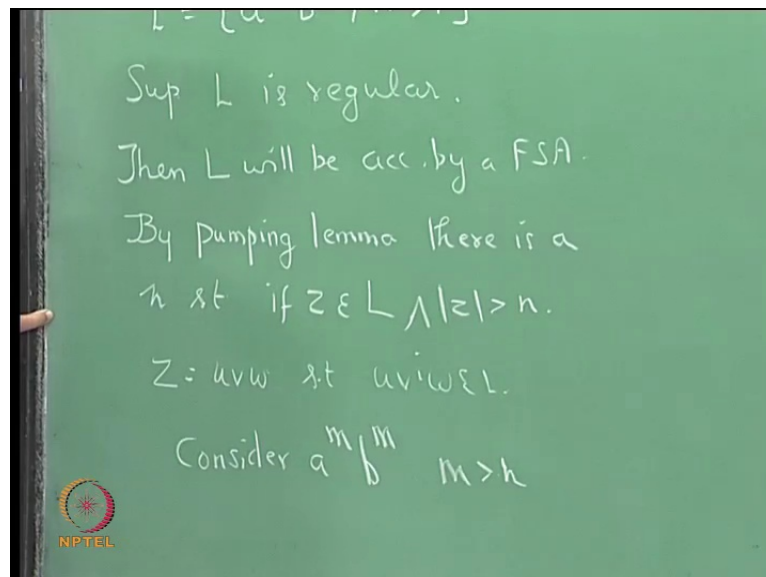 Sup L is regular.
Then L will be acc. by a FSA.
By pumping lemma there is a
n st if z ε L ∧ |z| > n.
Z = uvw s.t uvⁱw ε L.
Consider aᵐbᵐ m > n
NPTEL